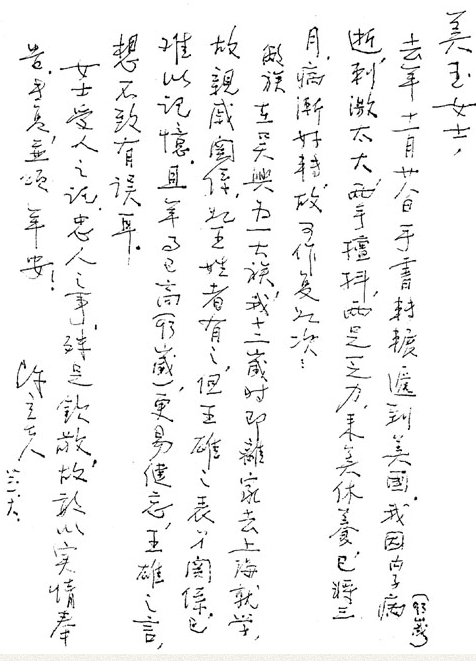 美玉女士,
去年十一月廿八日手書轉輾遞到美國,我因內子病(93歲)
逝,刺激太大,兩手擅抖,兩足乏力,來美休養已將三
月,病漸好轉,故可作复如次:
敝族在吳興為一大族,我十二歲時即離家去上海就学,
故親戚関係,如王姓者有之,但王雄之表弟関係,已
难以記憶,且年事已高(93歲),更易健忘,王雄之言,
想不致有误耳.
女士受人之託,忠人之事,殊足欽敬,故敢以实情奉
告,耑复,並頌 年安!
陈立夫